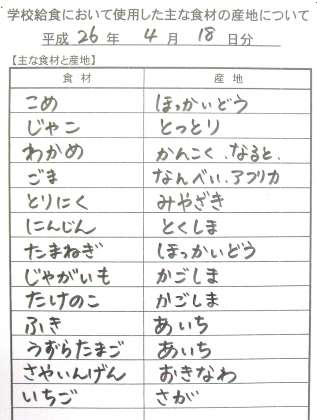 学校給食において使用した主な食材の産地について
平成 26 年 4 月 18 日分
【主な食材と産地】
食材 産地
こめ ほっかいどう
じゃこ とっとり
わかめ かんこく、なると、
ごま なんべい、アフリカ
とりにく みやざき
にんじん とくしま
たまねぎ ほっかいどう
じゃがいも かごしま
たけのこ かごしま
ふき あいち
うずらたまご あいち
さやいんげん おきなわ
いちご さが